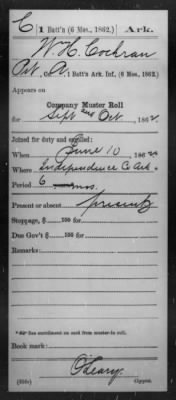 C | 1 Batt'n (6 Mos., 1862.) | Ark.
W. H. Cochran
Pvt, Co. A, 1 Batt'y Ark. Inf. (6 Mos., 1862.)
Appears on
Company Muster Roll
for Sept and Oct, 1862.
Joined for duty and enrolled:
When June 10, 1862
Where Independence C. Ark.
Period 6 mos.
Present or absent present
Stoppage, $ 100 for
Due Gov't $ 100 for
Remarks:
Book mark:
O'Leary.
Copyist.